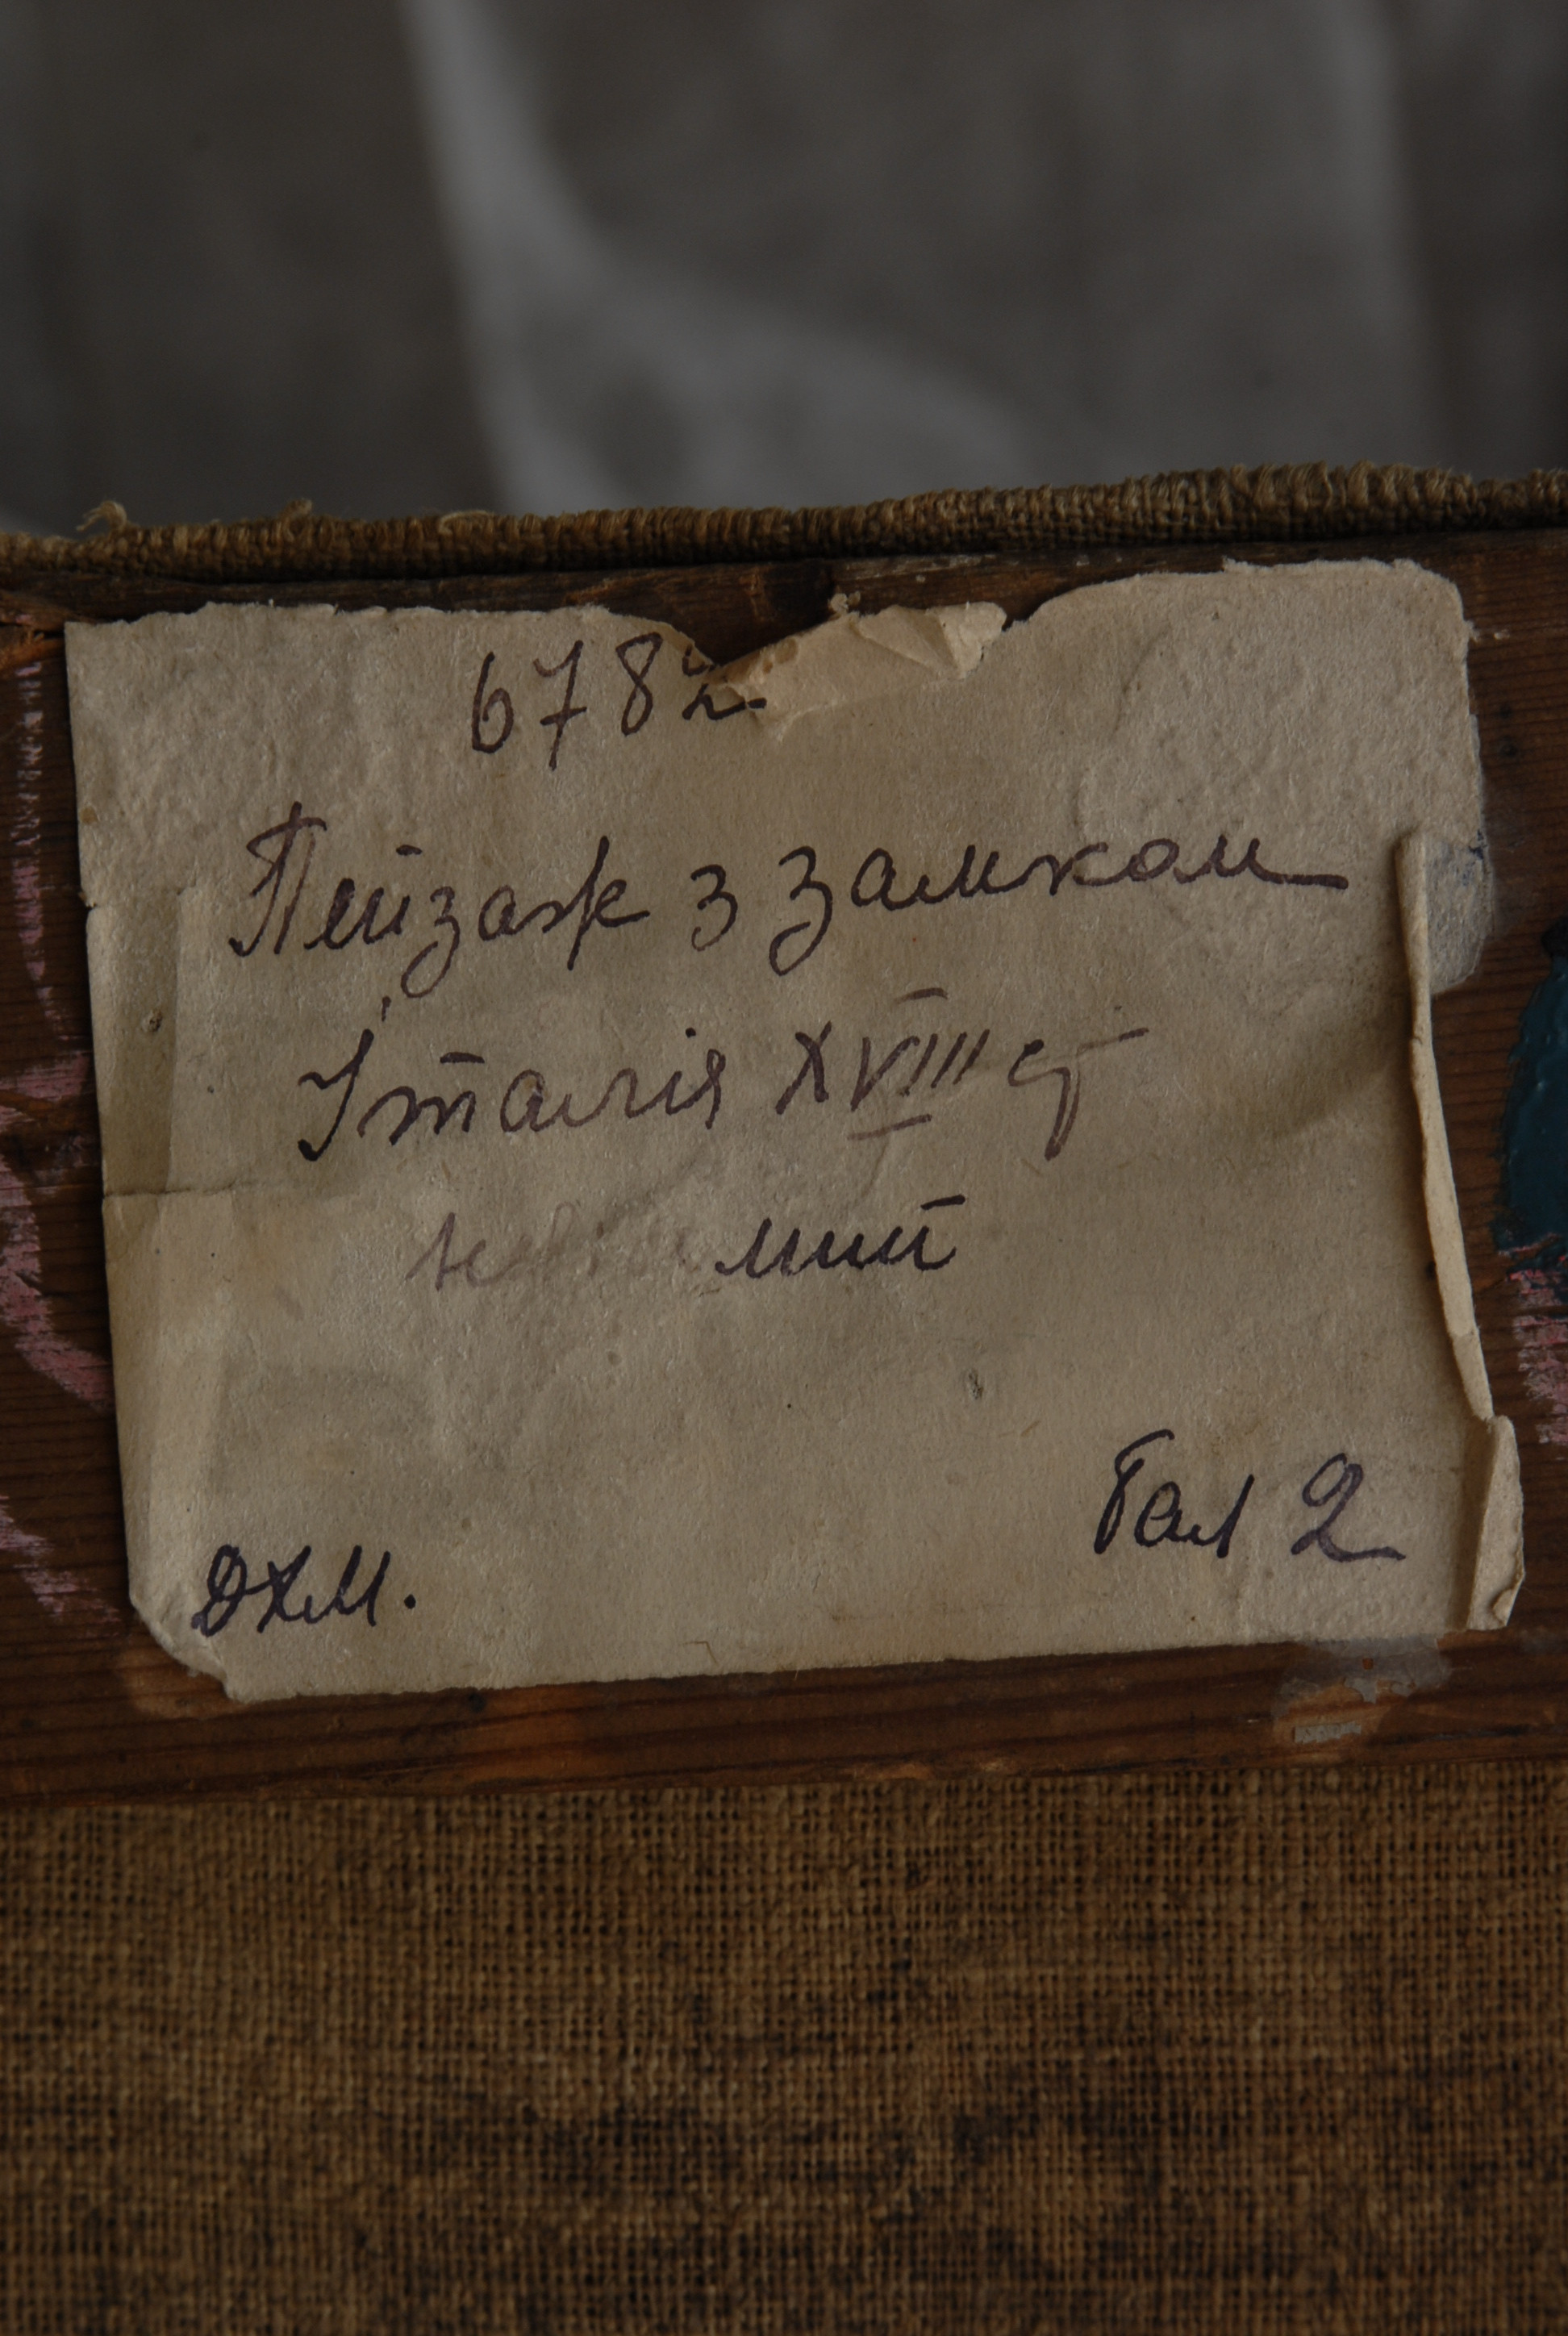 6782
Пейзаж з замком
Італія XVIII ст
Гал 2
ДХМ.